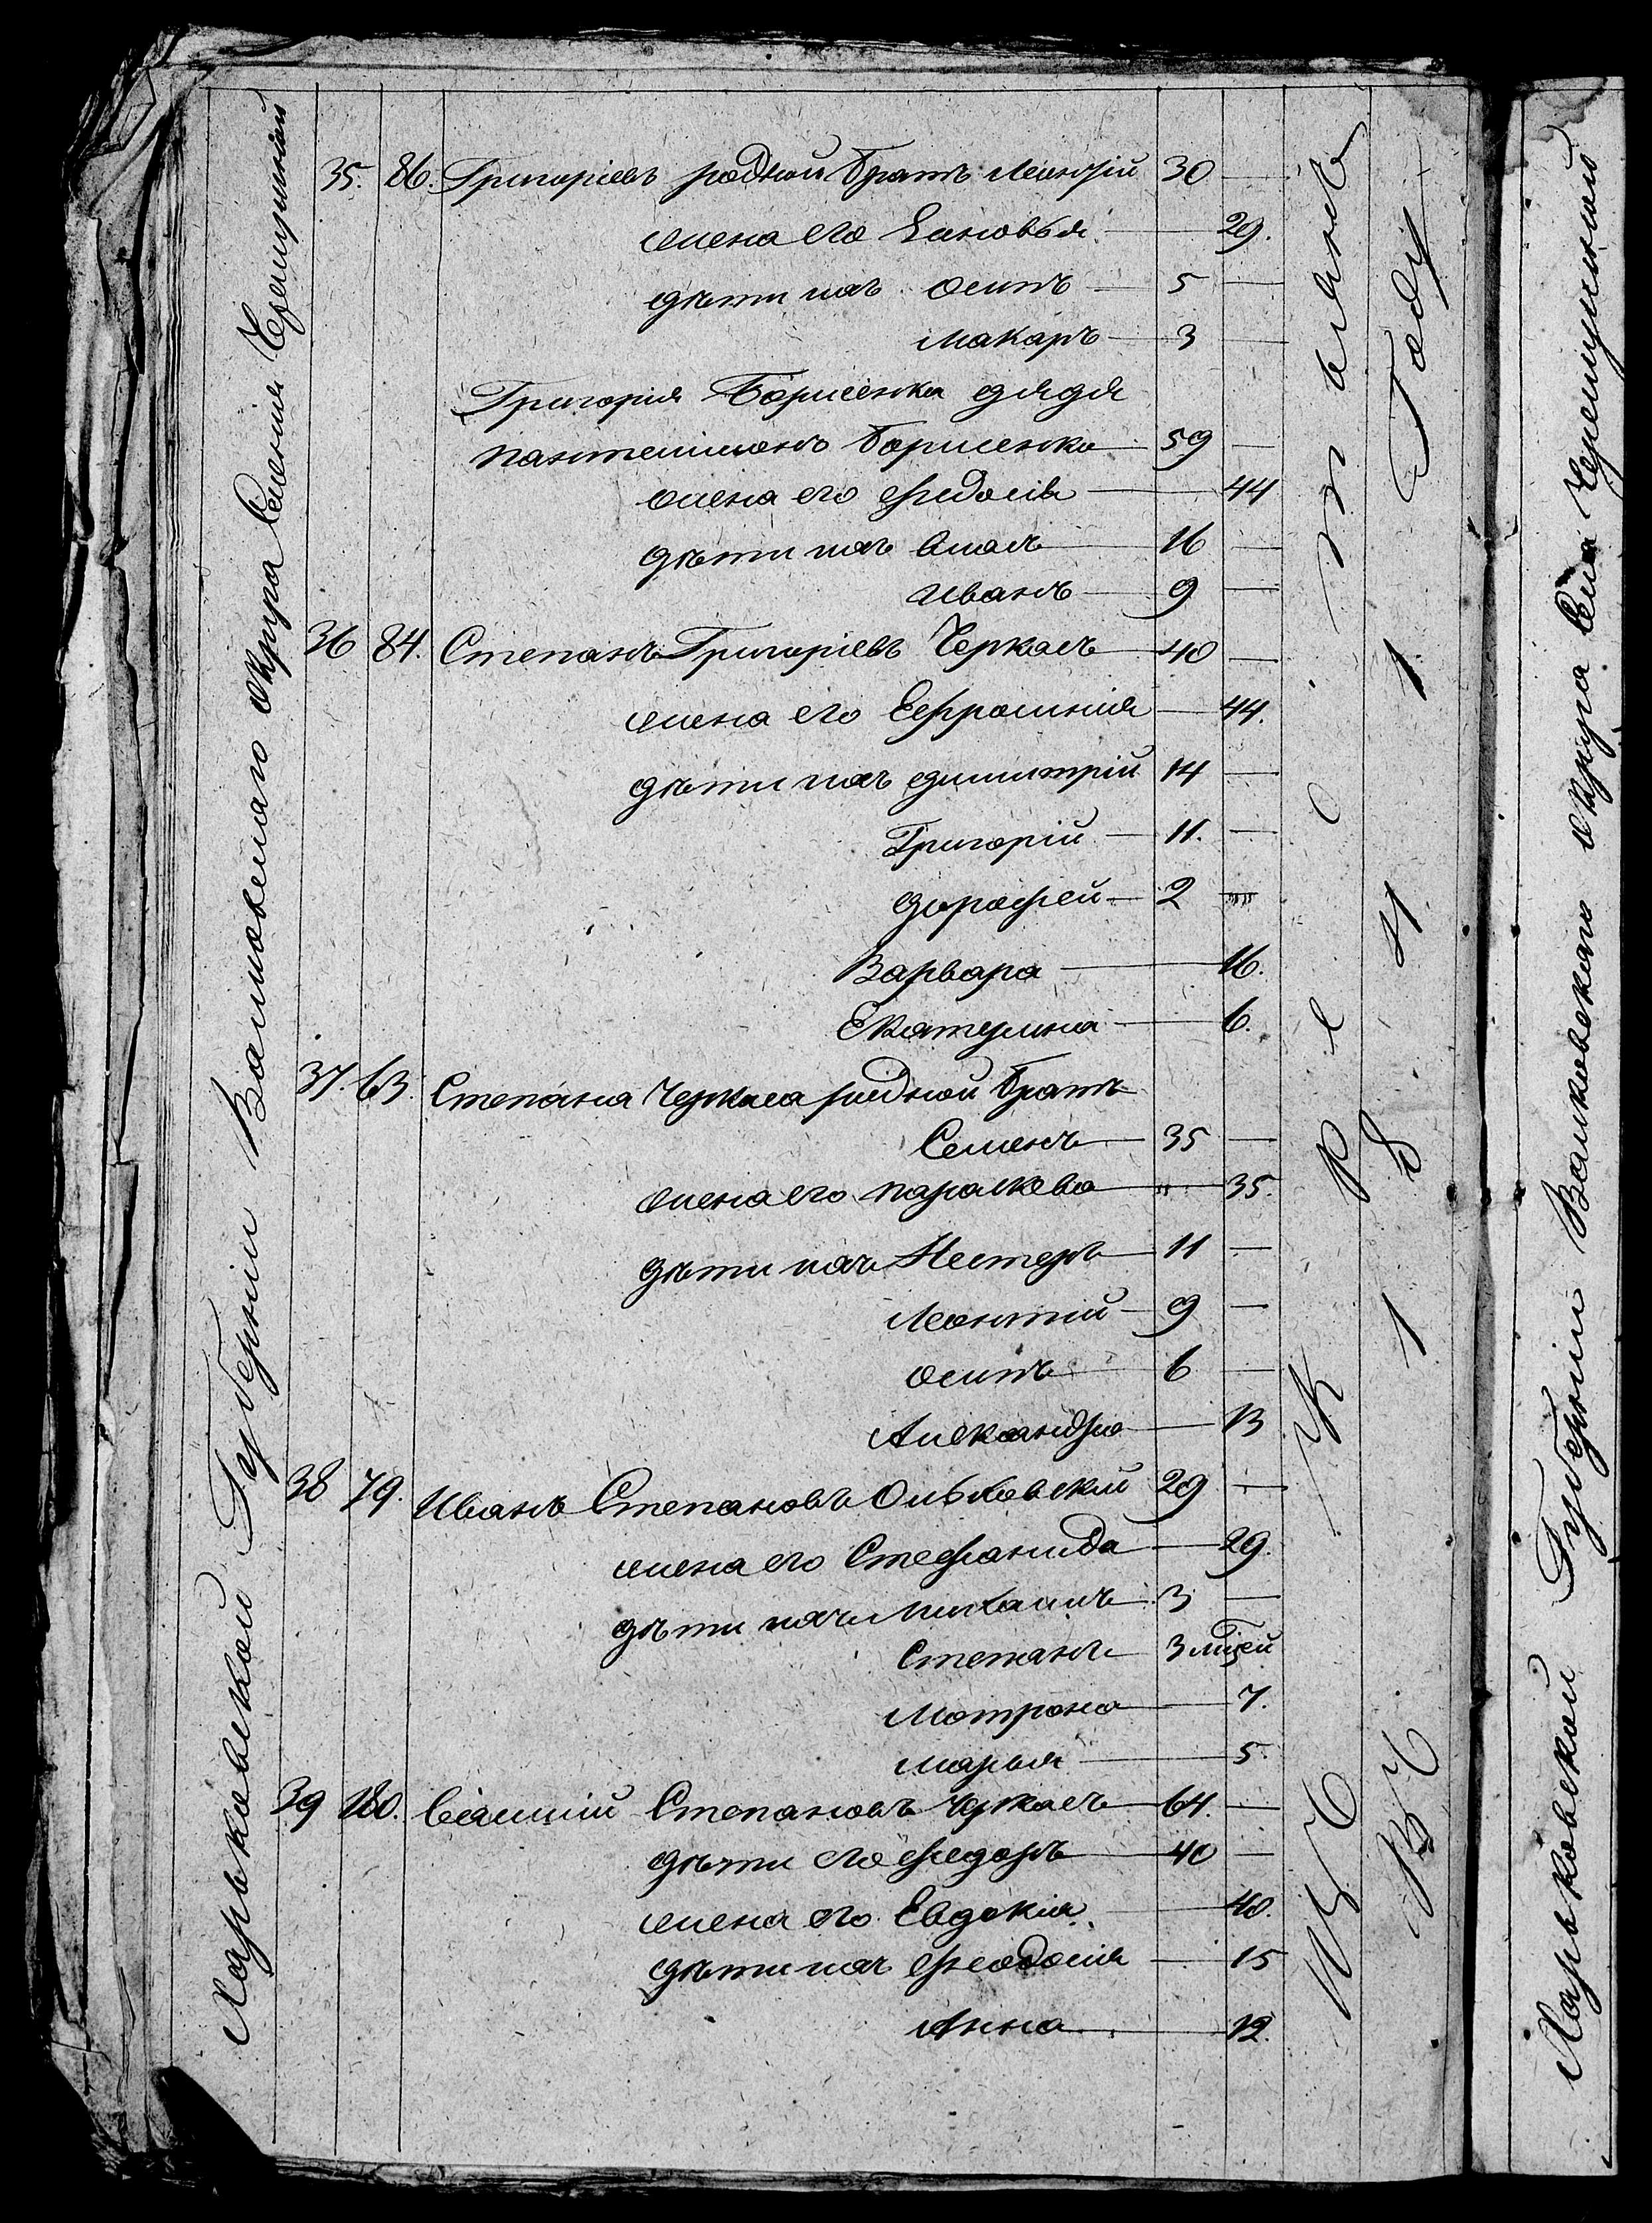 Харьковской Губерніи Валковскаго округа Селенія Черемушной
35. 86. Григоріевъ родной братъ Леонтій 30 —
жена его Зиновья — 29.
дѣти ихъ Осипъ — 5 —
Макаръ — 3 —
Григорія Борисенка дядя
Пантелимонъ Борисенко — 59 —
жена его Федосія — 44
дѣти ихъ Власъ — 16 —
Иванъ — 9 —
36 84. Степанъ Григоріевъ Черкасъ — 40 —
жена его Ефросинія — 44.
дѣти ихъ Димитрій 14 —
Григорій — 11. —
Дорофей — 2 —
Варвара — 16.
Екатерина — 6.
37. 63. Степана Черкаса родной братъ
Семенъ — 35 —
жена его Параскева — " — 35.
дѣти ихъ Нестеръ — 11 —
Леонтій — 9 —
Осипъ — 6 —
Александра — 13
38 79. Иванъ Степановъ Ольховский 29 —
жена его Стефанида — 29.
дѣти ихъ Михаилъ — 3 —
Степанъ — 3 мцей
Мотрона — 7.
Марья — 5.
39 180. Степановъ Черкасъ — 64. —
дѣти его Федоръ — 40 —
жена его Евдокія — 40.
дѣти ихъ Феодосія — 15
Анна — 12.
Изъ Крестьянъ
Въ 1841 Году
Харьковской Губерніи Валковскаго округа Села Черемушного